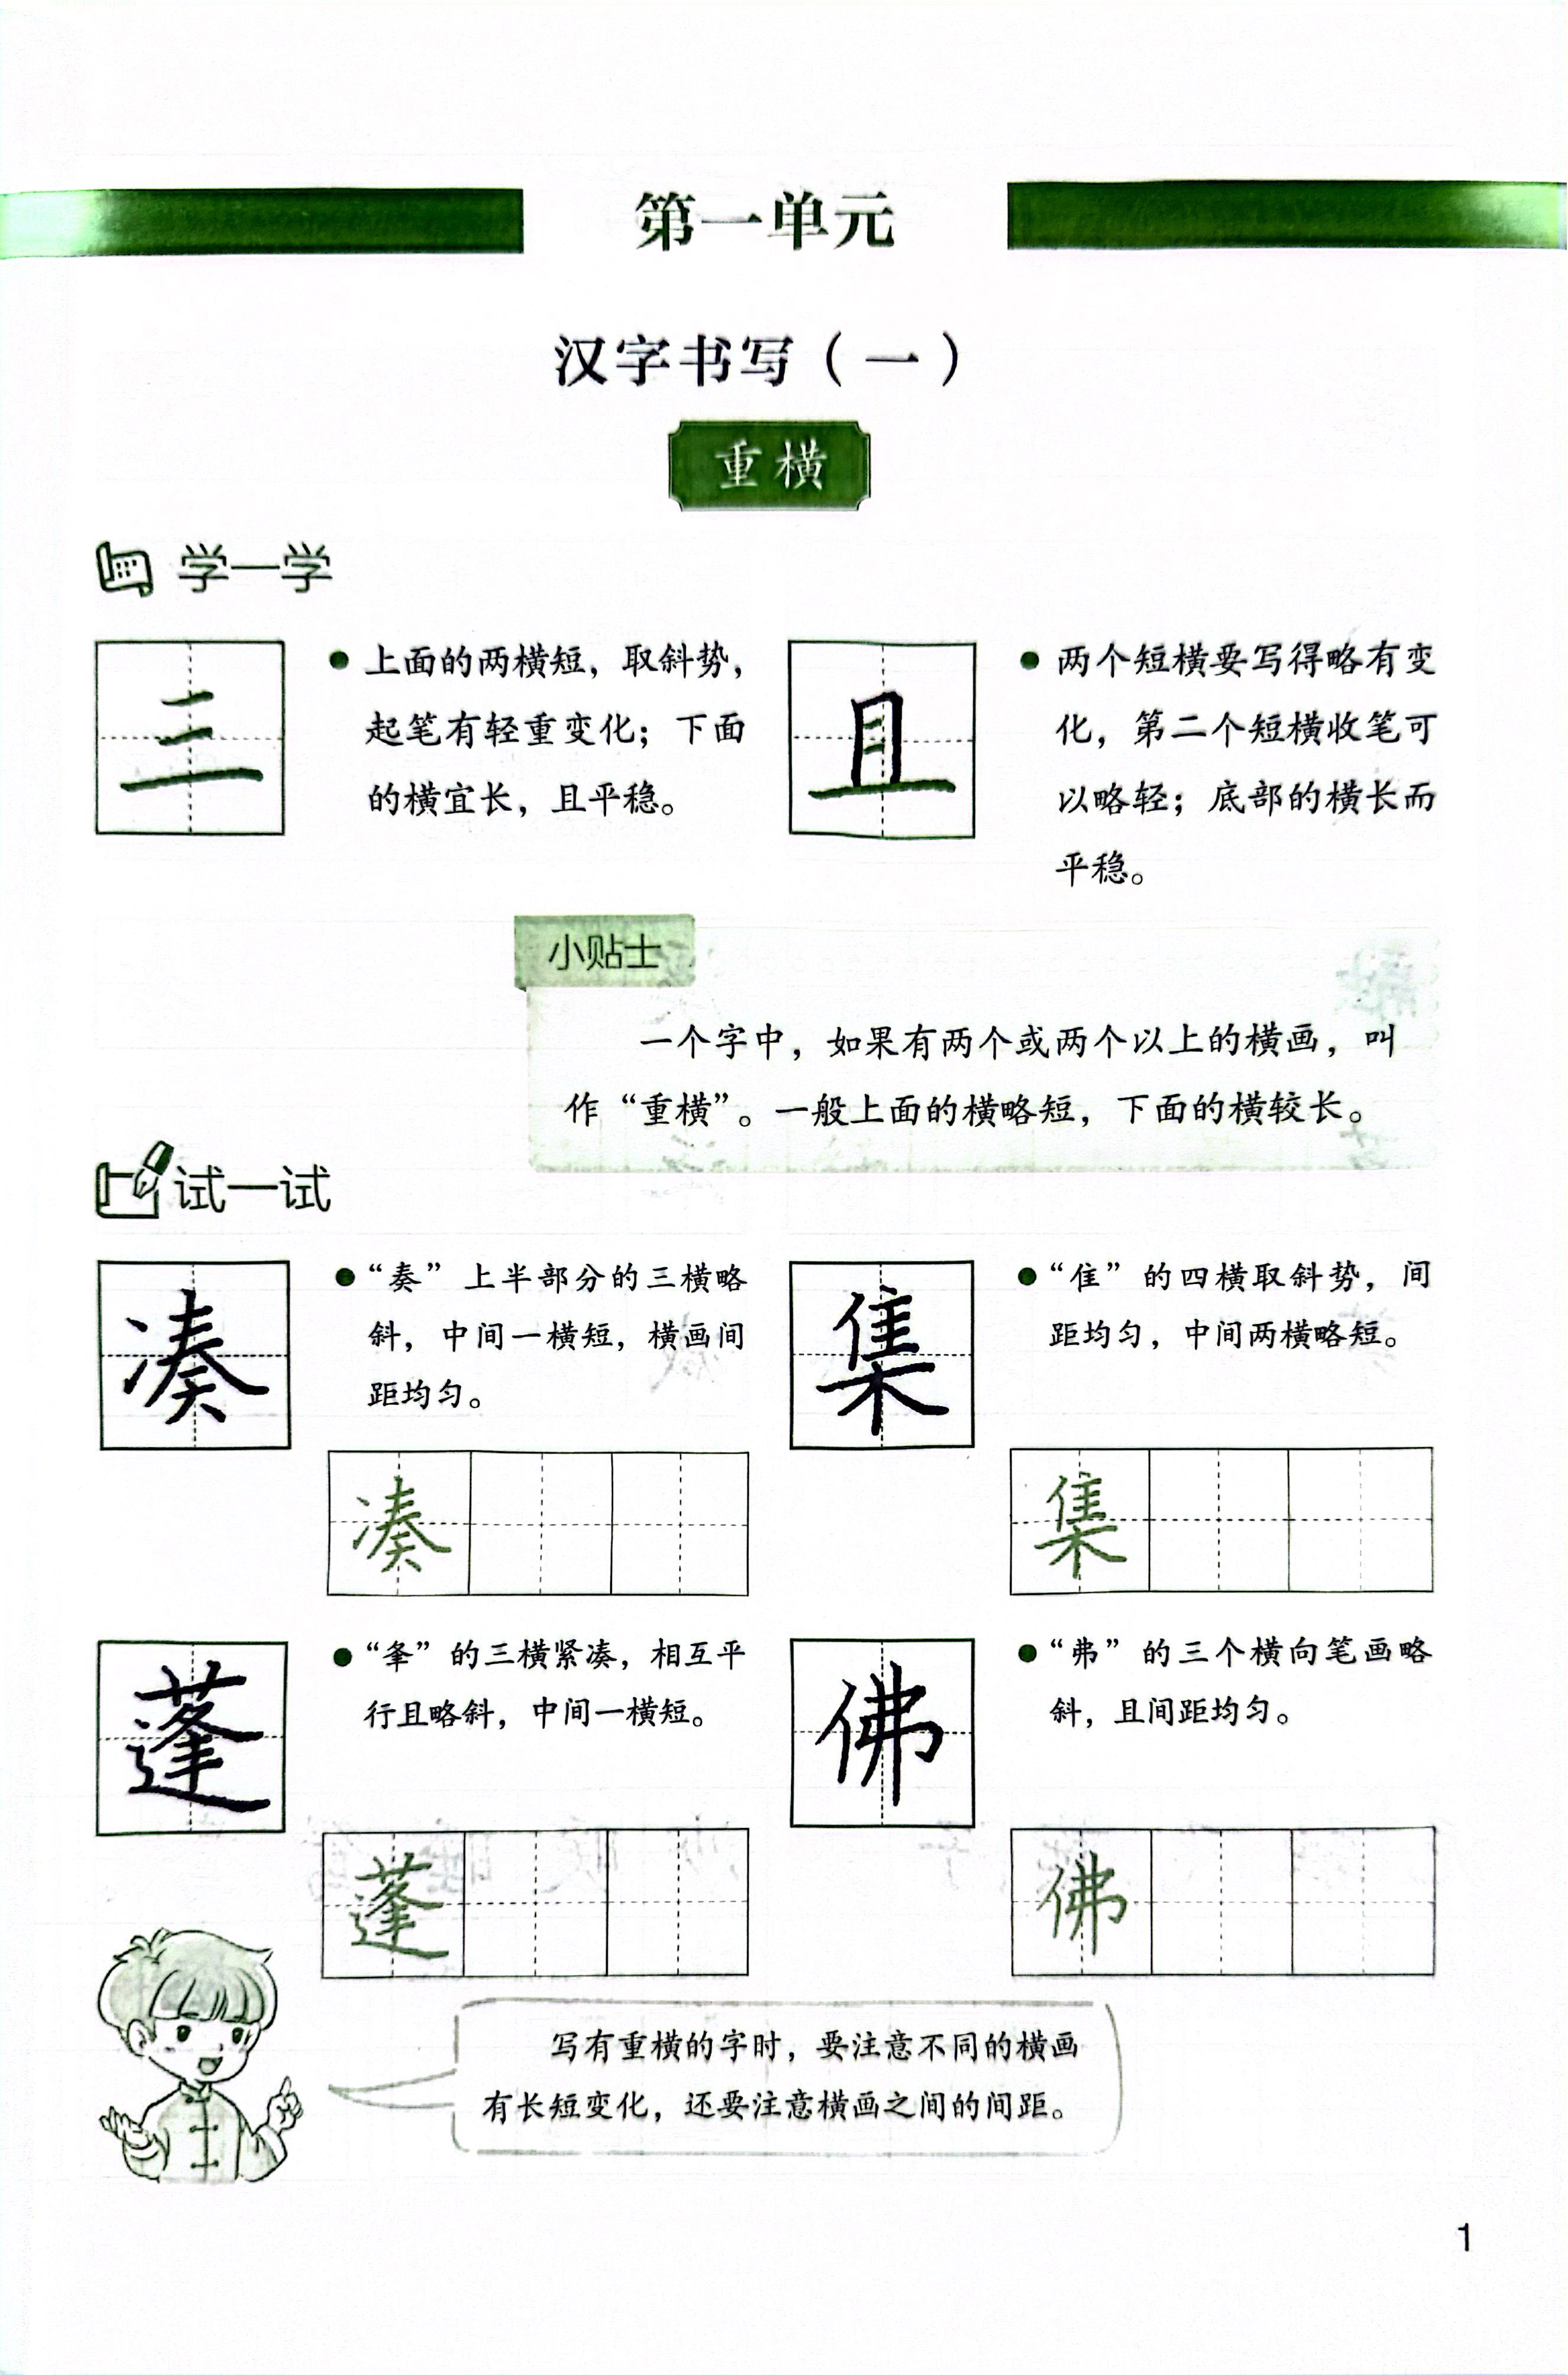 第一单元
汉字书写（一）
重横
学一学
三
上面的两横短，取斜势，
起笔有轻重变化；下面
的横宜长，且平稳。
且
两个短横要写得略有变
化，第二个短横收笔可
以略轻；底部的横长而
平稳。
小贴士
一个字中，如果有两个或两个以上的横画，叫
作“重横”。一般上面的横略短，下面的横较长。
试一试
凑
“奏”上半部分的三横略
斜，中间一横短，横画间
距均匀。
凑
集
“隹”的四横取斜势，间
距均匀，中间两横略短。
集
蓬
“夆”的三横紧凑，相互平
行且略斜，中间一横短。
蓬
佛
“弗”的三个横向笔画略
斜，且间距均匀。
佛
写有重横的字时，要注意不同的横画
有长短变化，还要注意横画之间的间距。
1